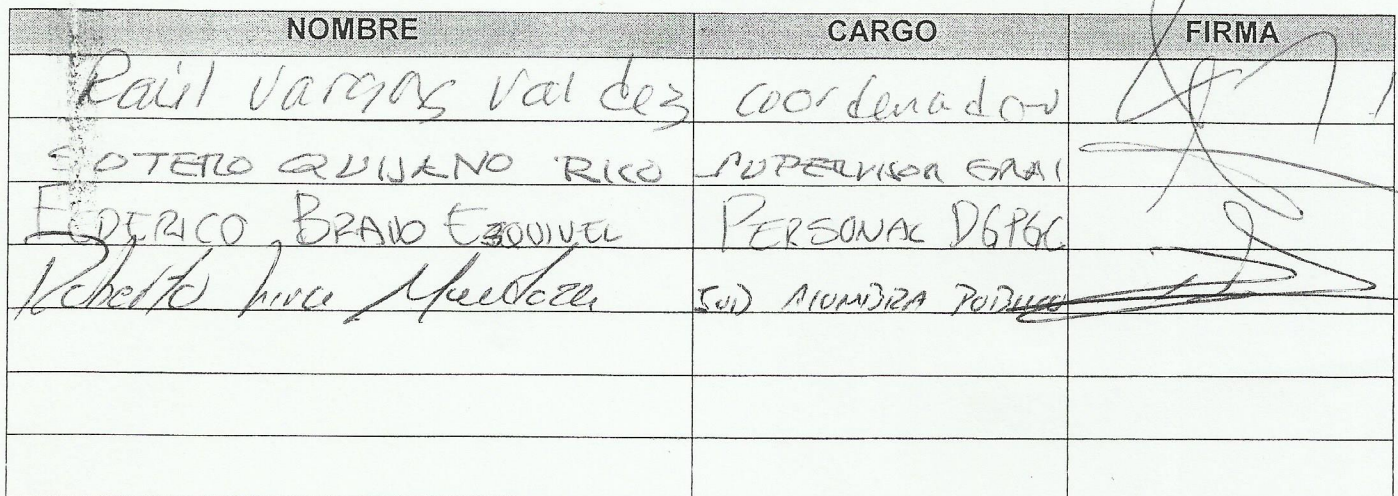 NOMBRE CARGO FIRMA
Raúl Vargas Valdez coordenador
SOTERO QUIJANO RICO SUPERVISOR GRAL
FEDERICO BRAVO ESQUIVEL PERSONAL DGPGC
Roberto Mendoza SUB ALUMBRA PUBLICO